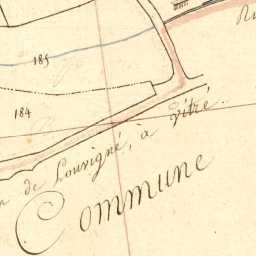 185
184
de Louvigné, à Vitré.
Commune